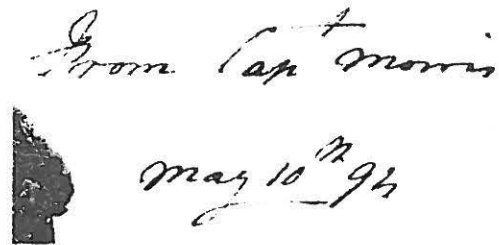 From Capt Morris
May 10th 94